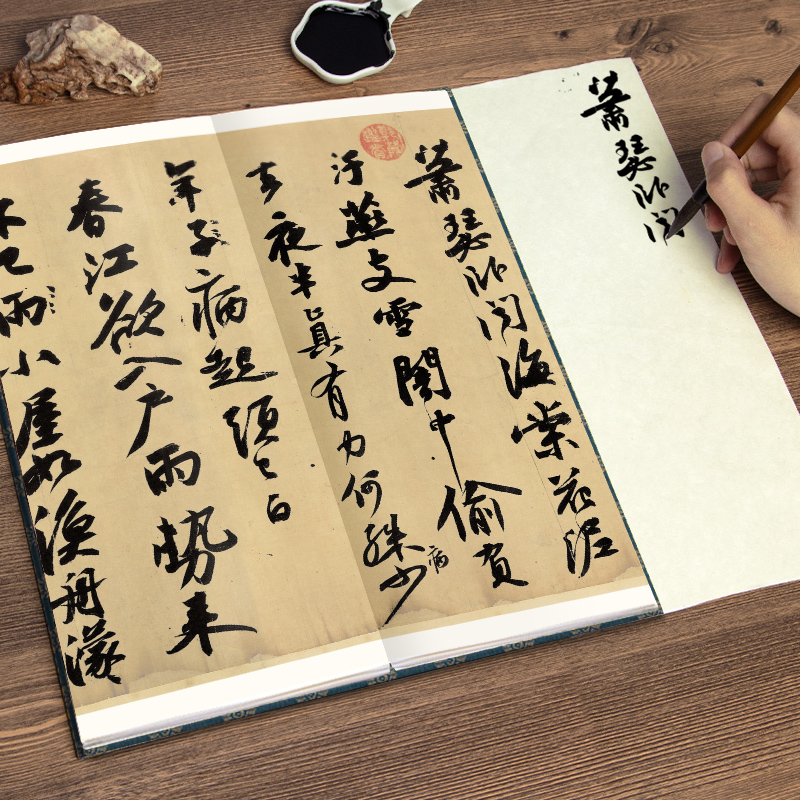 蕭瑟卧聞
蕭瑟卧聞海棠花泥
汙燕支雪闇中偷負
去夜半真有力何殊少
病
年子病起須已白
春江欲入户雨勢來
不已雨小屋如漁舟濛